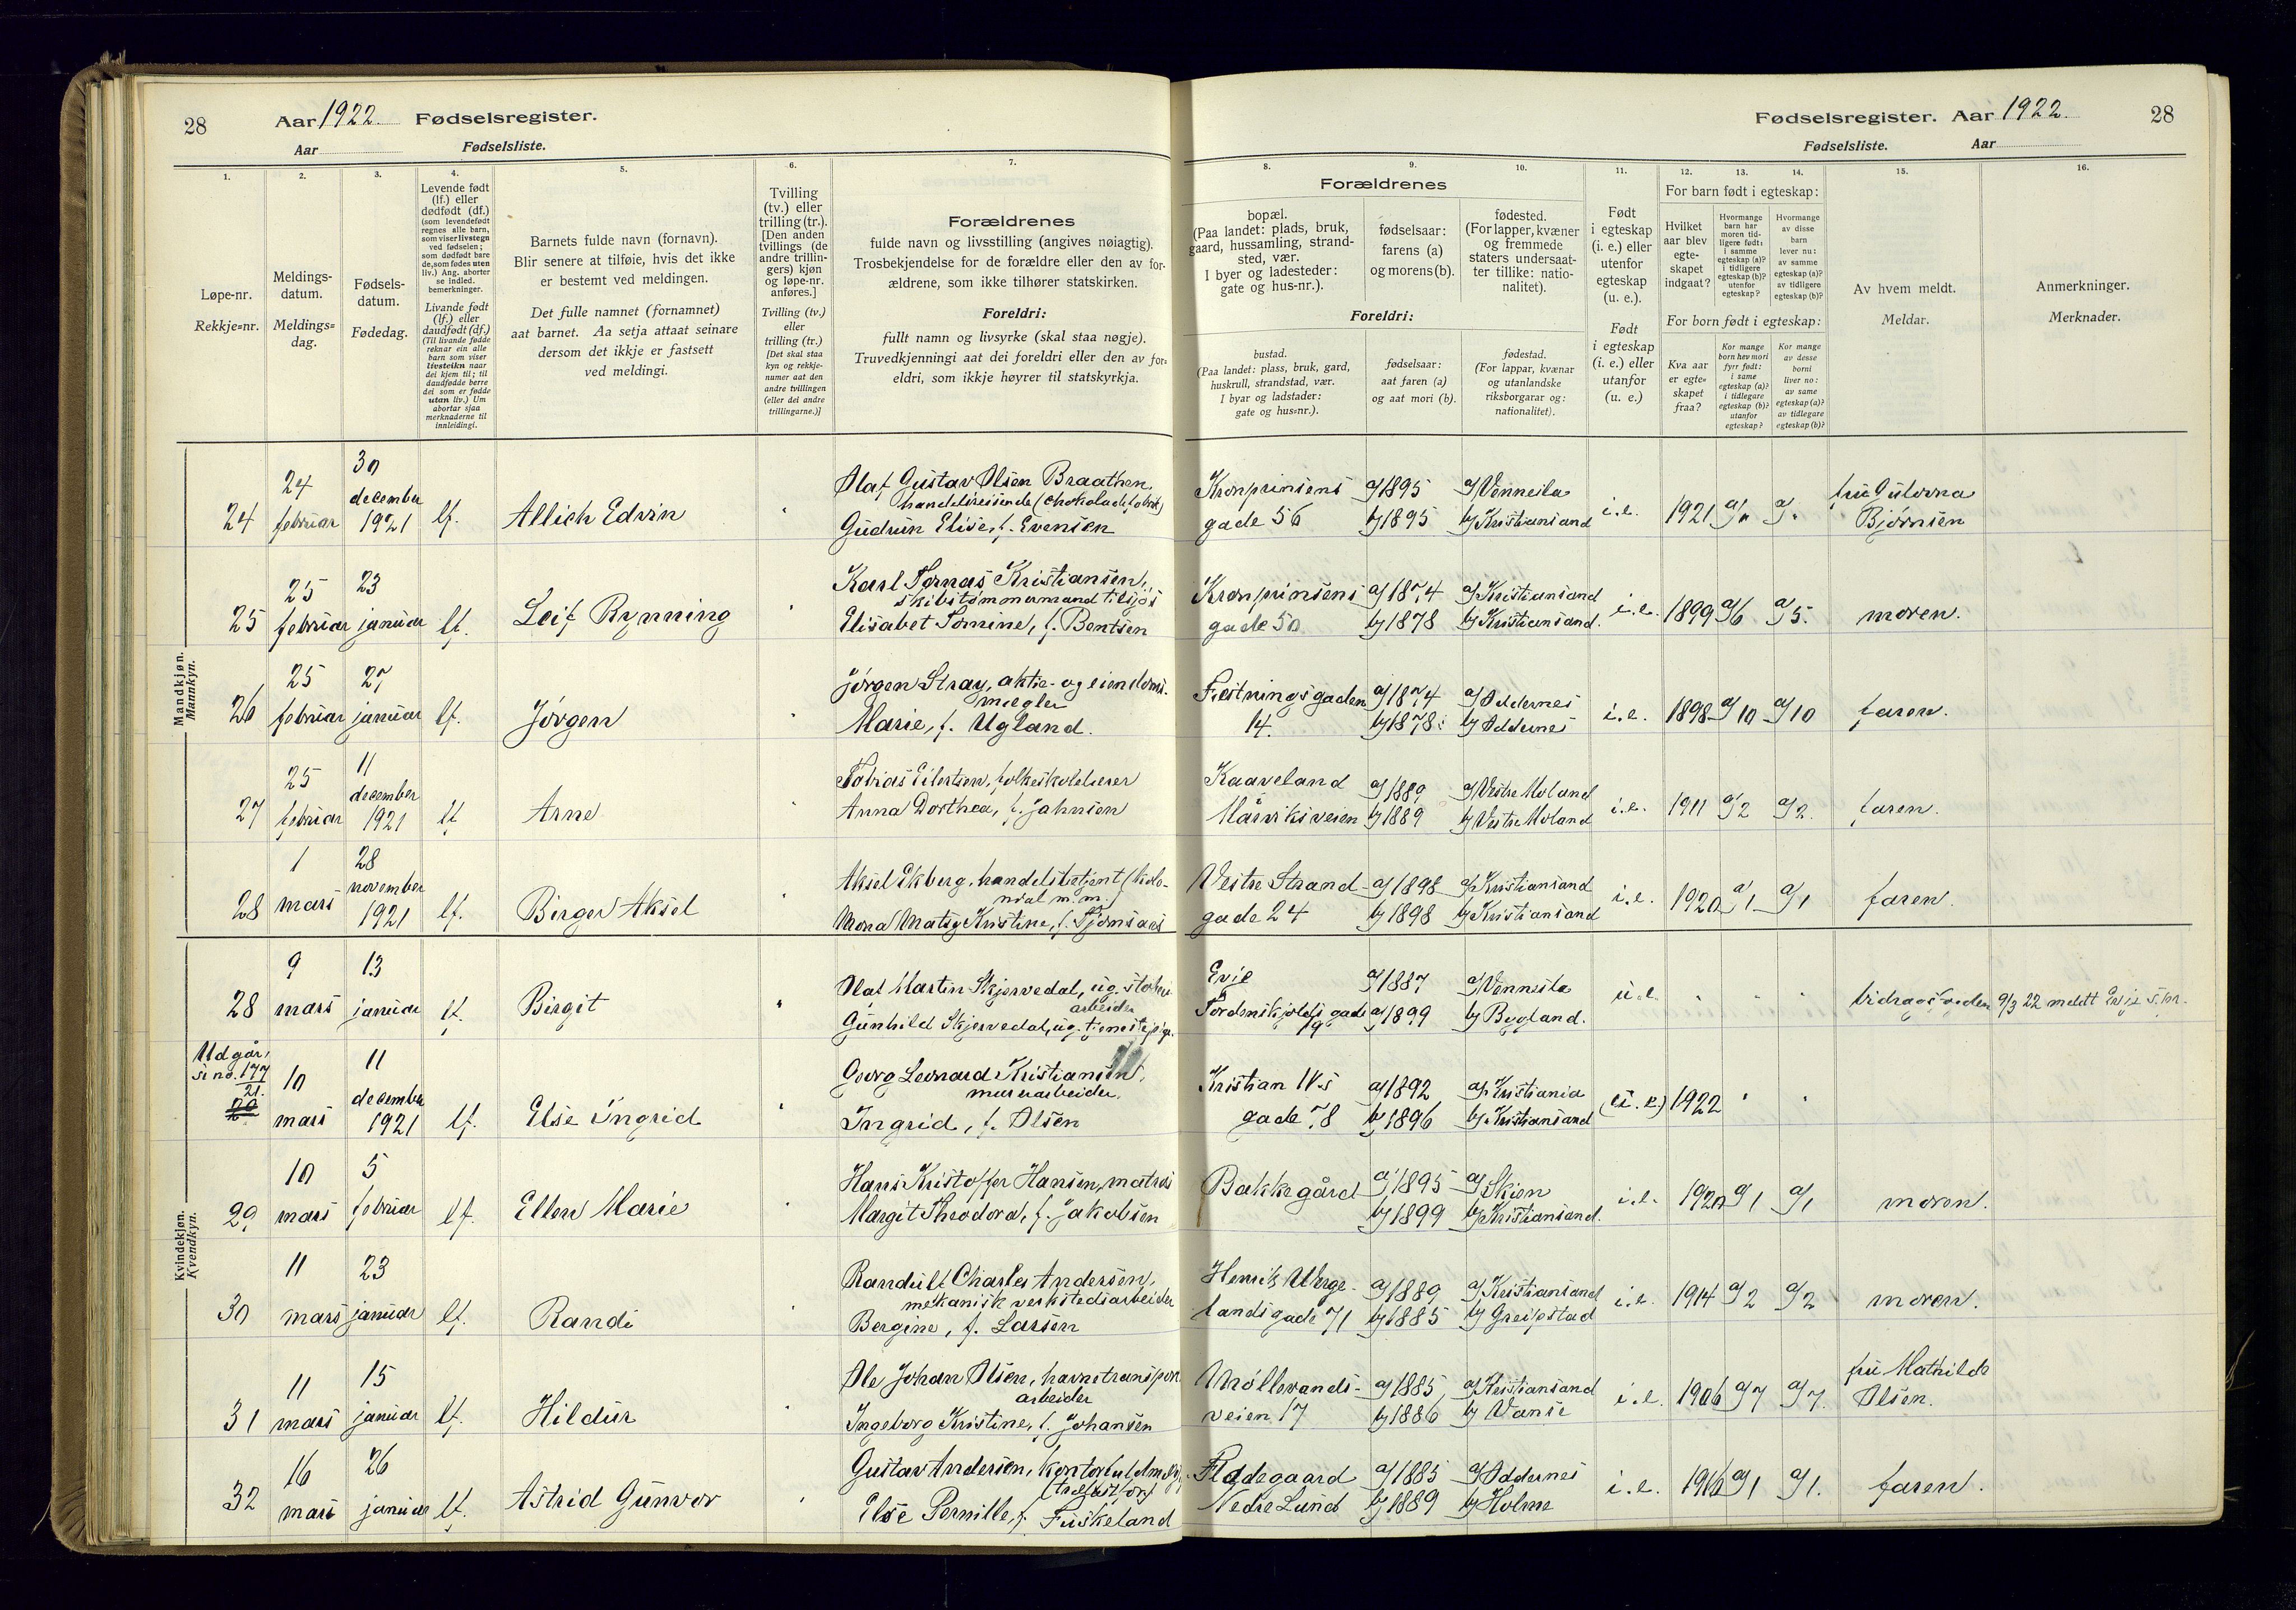 28
Aar 1922. Fødselsregister.
Aar Fødselsliste.
Fødselsregister. Aar 1922.
28
Fødselsliste. Aar
1.
Løpe-nr.
Rekkje=nr.
2.
Meldings-
datum.
Meldings=
dag.
3.
Fødsels-
datum.
Fødedag.
4.
Levende født
(lf.) eller
dødfødt (df.)
(som levendefødt
regnes alle barn,
som viser livstegn
ved fødselen;
som dødfødt bare
de, som fødes uten
liv.) Ang. aborter
se indled.
bemerkninger.
Livande født
(lf.) eller
daudfødt (df.)
(Til livande fødde
reknar ein alle
barn som viser
livsteikn naar
dei kjem til; til
daudfødde berre
dei som er fødde
utan liv.) Um
abortar sjaa
merknaderne til
innleidingi.
5.
Barnets fulde navn (fornavn).
Blir senere at tilføie, hvis det ikke
er bestemt ved meldingen.
Det fulle namnet (fornamnet)
aat barnet. Aa setja attaat seinare
dersom det ikkje er fastsett
ved meldingi.
6.
Tvilling
(tv.) eller
trilling (tr.).
[Den anden
tvillings (de
andre trillin-
gers) kjøn
og løpe-nr.
anføres.]
Tvilling (tv.)
eller
trilling (tr.)
[Det skal staa
kyn og rekkje-
numer aat den
andre tvillingen
(eller dei andre
trillingarne.)]
7.
Forældrenes
fulde navn og livsstilling (angives nøiagtig).
Trosbekjendelse for de forældre eller den av for-
ældrene, som ikke tilhører statskirken.
Foreldri:
fullt namn og livsyrke (skal staa nøgje).
Truvedkjenningi aat dei foreldri eller den av for=
eldri, som ikkje høyrer til statskyrkja.
Forældrenes
8.
bopæl.
(Paa landet: plads, bruk,
gaard, hussamling, strand-
sted, vær.
I byer og ladesteder:
gate og hus-nr.).
9.
fødselsaar:
farens (a)
og morens (b).
10.
fødested.
(For lapper, kvæner
og fremmede
staters undersaat-
ter tillike: natio-
nalitet).
Foreldri:
bustad.
(Paa landet: plass, bruk, gard,
huskrull, strandstad, vær.
I byar og ladstader:
gate og hus=nr.).
fødselsaar:
aat faren (a)
og aat mori (b).
fødestad.
(For lappar, kvænar
og utanlandske
riksborgarar og:
nationalitet).
11.
Født
i egteskap
(i. e.) eller
utenfor
egteskap
(u. e.).
Født
i egteskap
(i. e.) eller
utanfor
(u. e.)
12. 13. 14.
For barn født i egteskap:
Hvilket
aar blev
egte-
skapet
indgaat?
Hvormange
barn har
moren tid-
ligere født:
i samme
egteskap (a)?
i tidligere
egteskap (b)?
utenfor
egteskap?
Hvormange
av disse
barn
lever nu:
av samme
egteskap (a)?
av tidligere
egteskap (b)?
For born født i egteskap:
Kva aar
er egte=
skapet
fraa?
Kor mange
born hev mori
fyrr født:
i same
egteskap (a)?
i tidlegare
egteskap (b)?
utanfor
egteskap?
Kor mange
av desse
borni
liver no:
av same
egteskap (a)?
av tidlegare
egteskap (b)?
15.
Av hvem meldt.
Meldar.
16.
Anmerkninger.
Merknader.
Mandkjøn.
Mannkyn.
24
24 februar
30 december 1921
lf.
Edvin
Olaf Gustav Olsen Braathen,
handelsreisende
Gudrun Elise, f. Evensen
Kronprinsens
gade 56
a) 1895
b) 1895
a) Vennesla
b) Kristiansand
i.e.
1921
fru Gulovna
Bjørnsen
25
25 februar
23 januar
lf.
Leif Rynning
Karl Tomas Kristiansen,
skibstømmermand tilsjøs
Elisabet Tomine, f. Bentsen
Kronprinsens
gade 50
a) 1874
b) 1878
a) Kristiansand
b) Kristiansand.
i.e.
1899 a) 6 a) 5.
moren.
26
25 februar
27 januar
lf.
Jørgen
Jørgen Stray, aktie- og eiendoms-
mægler
Marie, f. Ugland.
Festningsgaden
14.
a) 1874
b) 1878
a) Oddernes
b) Oddernes
i.e.
1898 a) 10 a) 10
faren.
27
25 februar
11 december 1921
lf
Arne
Tobias Eilertsen, folkeskolelærer
Anna Dorthea, f. Jahnsen
Kaaveland
Mårviksveien
a) 1889
b) 1889
a) Vestre Moland
b) Vestre Moland
i.e.
1911 a) 2 a) 2.
faren.
28
1 mars
28 november 1921
lf.
Birger Aksel
Aksel Ekberg, handelsbetjent (kolo-
nial m.m.)
Kristine, f.
Vestre Strand-
gade 24
a) 1898
b) 1898
a) Kristiansand
b) Kristiansand
i.e.
1920 a) 1 a) 1
faren.
Kvindekjøn.
Kvendkyn.
28
9 mars
13 januar
lf.
Birgit
Olaf Martin Skjervedal, ug.
arbeider
Gunhild Skjervedal, ug. tjenestepige.
Evje
Tordenskjolds gade
19
a) 1887
1899
a) Vennesla
b) Bygland.
u.e.
bidragsfogden
9/3 22 meldt Evje s.pr.
Udgår,
se no. 177
21.
29
10 mars
11 december 1921
lf.
Else Ingrid
Georg Leonard Kristiansen,
murerarbeider.
Ingrid, f. Olsen
Kristian IV.s
gade 78
a) 1892
b) 1896
a) Kristiania
b) Kristiansand
(u.e.)
1922
29
10 mars
5 februar
lf.
Ellen Marie
Hans Kristoffer Hansen, matros
Margit Theodora, f. Jakobsen
Bakkegård
a) 1895
b) 1899
a) Skien
b) Kristiansand.
i.e.
1920 a) 1 a) 1
moren.
30
11 mars
23 januar
lf.
Randi
Randulf Charles Andersen,
mekanisk verkstedsarbeider
Bergine, f. Larsen
Henrik Werge-
landsgade 71
a) 1889
b) 1885
a) Kristiansand
b) Greipstad
i.e.
1914 a) 2 a) 2
moren.
31
11 mars
15 januar
lf.
Hildur
Ole Johan Olsen, havnetransport
arbeider
Ingeborg Kristine, f. Johansen
Møllevands-
veien 17
a) 1885
b) 1886
a) Kristiansand
b) Vanse
i.e.
1906 a) 7 a) 7.
fru Mathilde
Olsen.
32
16 mars
26 januar
lf.
Astrid Gunvor
Gustav Andersen,
Else Pernille, f. Fuskeland
Flødegaard
Nedre Lund
a) 1885
b) 1889
a) Oddernes
b) Holme
i.e.
1916 a) 1 a) 1.
faren.